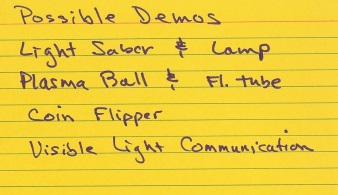 Possible Demos
Light Saber & Lamp
Plasma Ball & Fl. tube
Coin Flipper
Visible Light Communication